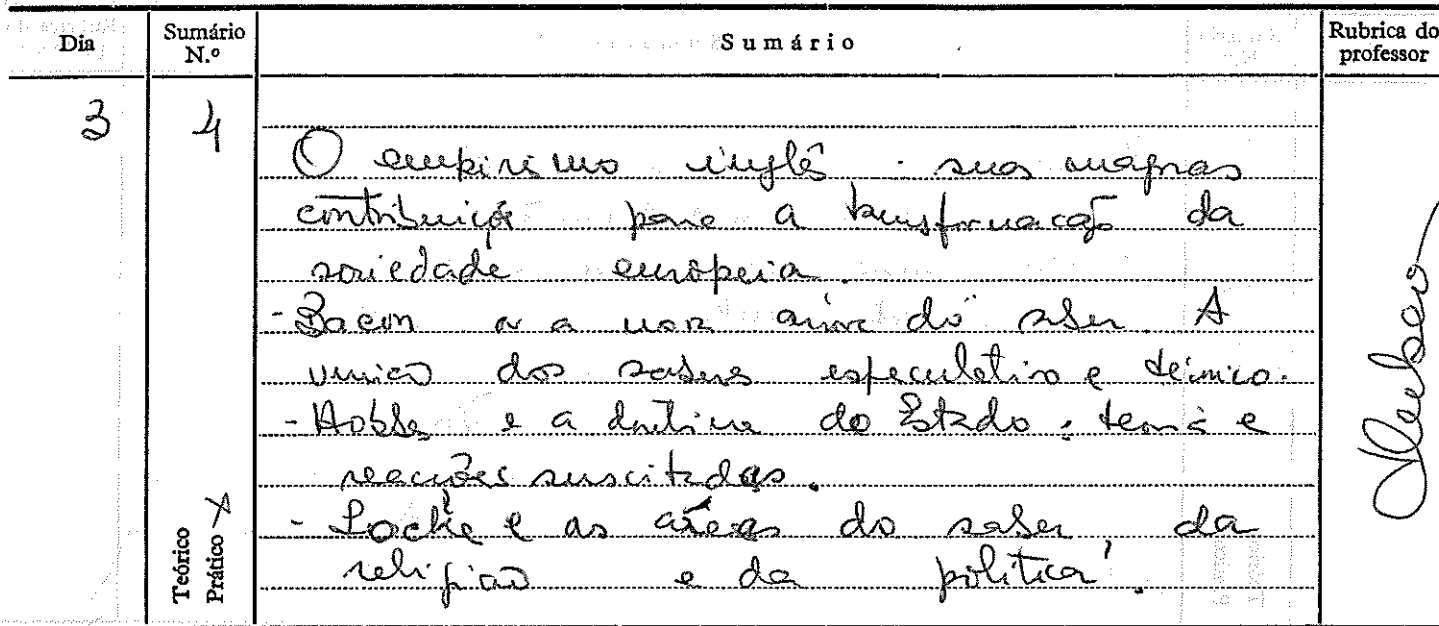 Dia
Sumário N.º
Sumário
Rubrica do professor
3
4
O empirismo inglês: suas magnas
contribuições para a transformação da
sociedade europeia.
- Bacon e a nova do saber. A
união dos saberes especulativo e técnico.
- Hobbes e a doutrina do Estado: teoria e
reacções suscitadas.
- Locke e as áreas do saber, da
religião e da política.
Teórico
Prático X